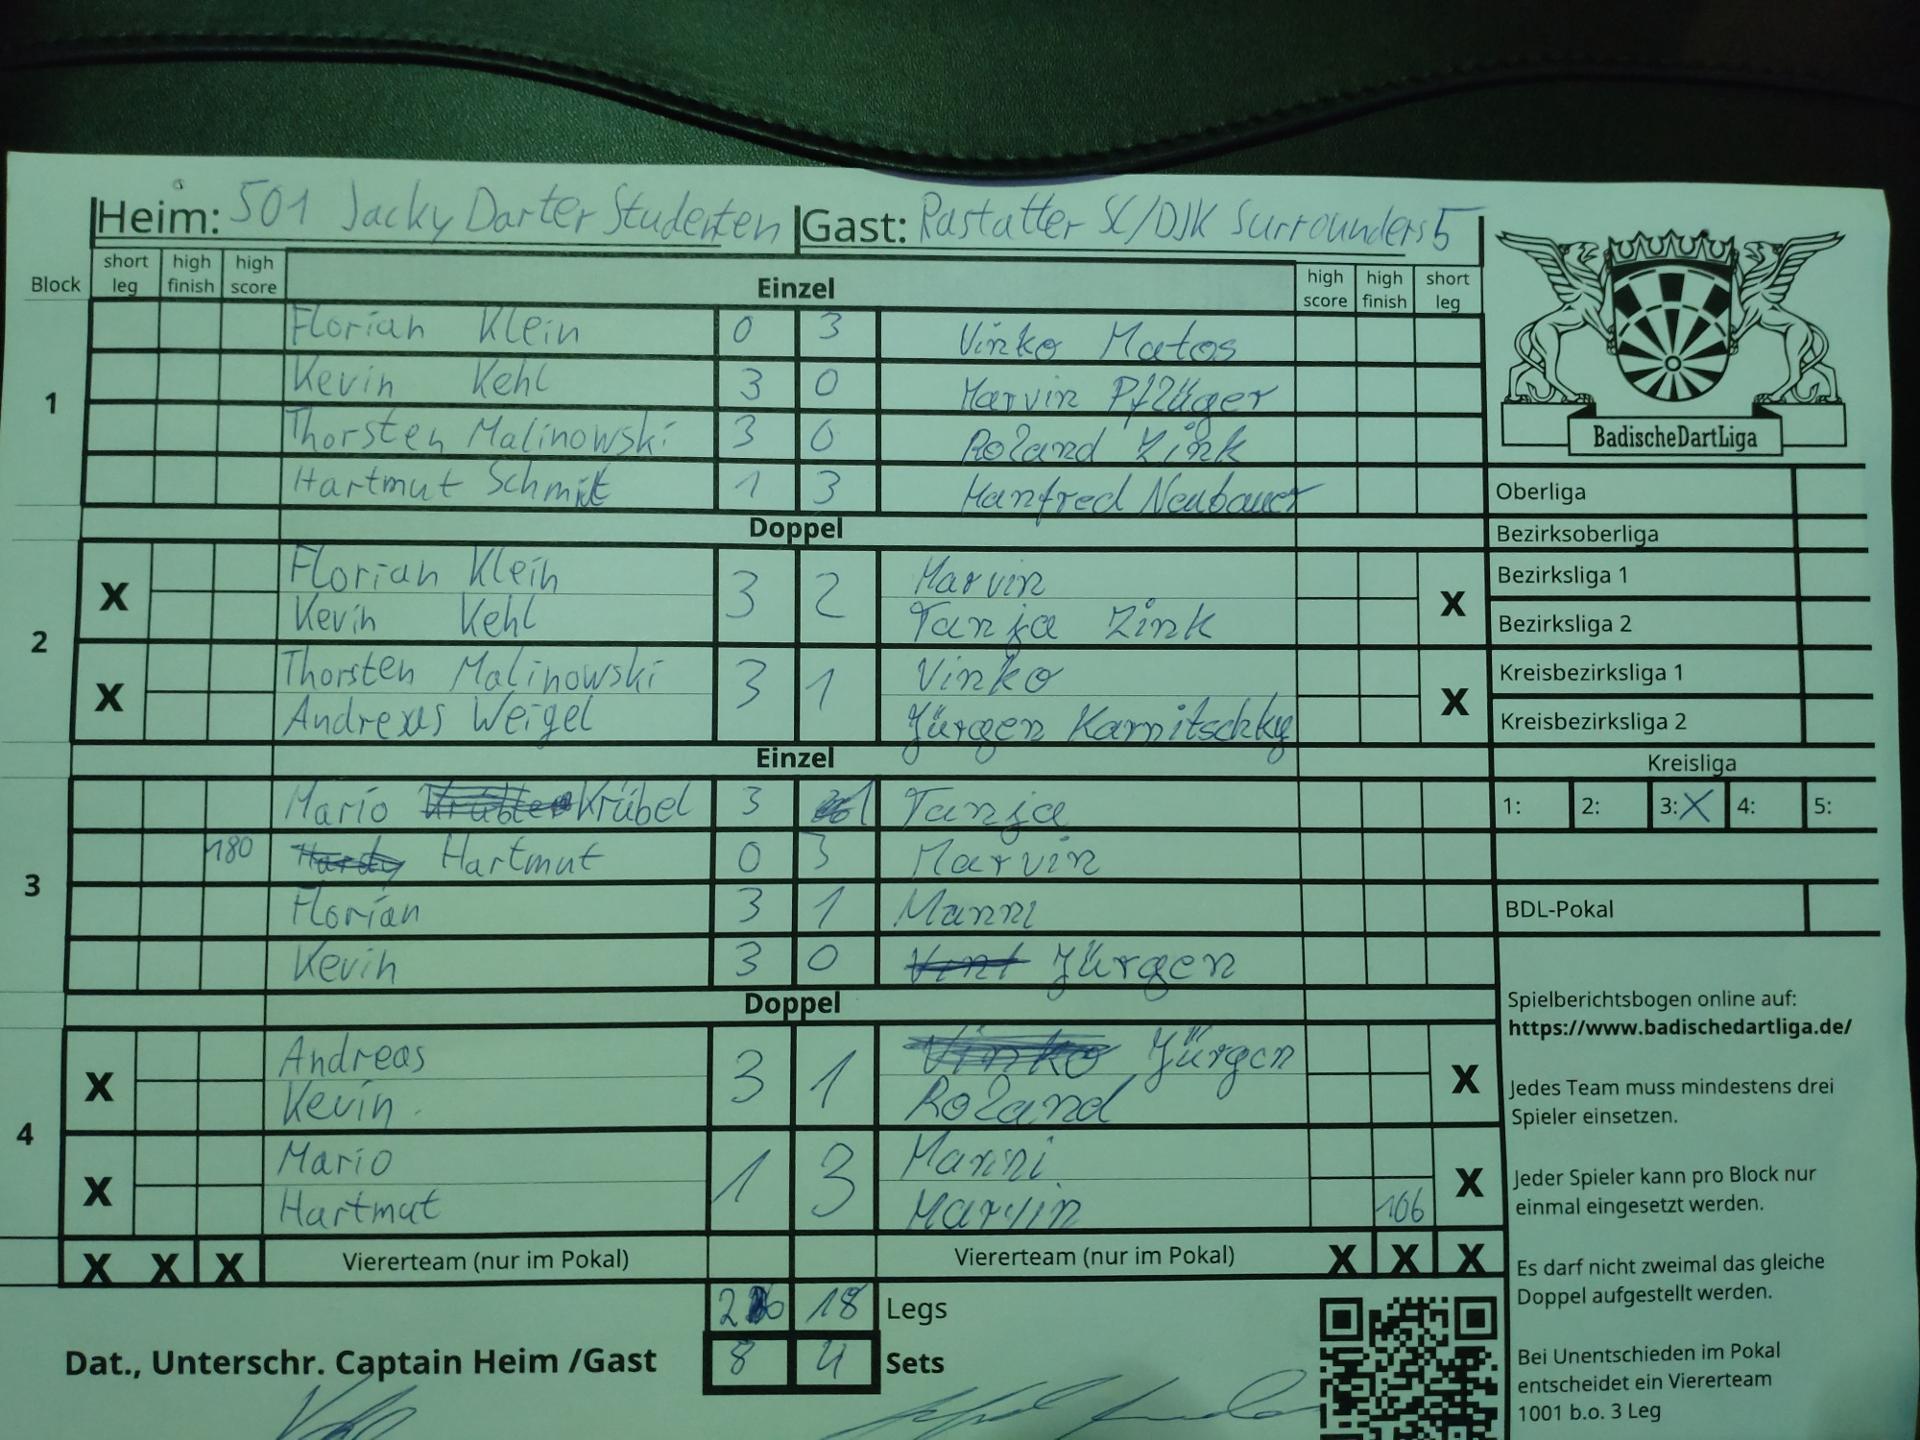 Heim: 501 Jacky Darter Studenten Gast: Rastatter SC/DJK Surrounders 5
Block short leg high finish high score Einzel high score high finish short leg
1
Florian Klein 0 3 Vinko Matos
Kevin Kehl 3 0 Marvin Pflüger
Thorsten Malinowski 3 0 Roland Zink
Hartmut Schmitt 1 3 Manfred Neubauer
Doppel
2
X Florian Klein 3 2 Marvin X
Kevin Kehl Tanja Zink
X Thorsten Malinowski 3 1 Vinko X
Andreas Weigel Jürgen Karnitschky
Einzel
3
Mario Krübel 3 1 Tanja
180 Hartmut 0 3 Marvin
Florian 3 1 Manni
Kevin 3 0 Jürgen
Doppel
4
X Andreas 3 1 Vinko Jürgen X
Kevin Roland
X Mario 1 3 Manni X
Hartmut Marvin 106
X X X Viererteam (nur im Pokal) Viererteam (nur im Pokal) X X X
26 18 Legs
Dat., Unterschr. Captain Heim /Gast 8 4 Sets
BadischeDartLiga
Oberliga
Bezirksoberliga
Bezirksliga 1
Bezirksliga 2
Kreisbezirksliga 1
Kreisbezirksliga 2
Kreisliga
1: 2: 3: X 4: 5:
BDL-Pokal
Spielberichtsbogen online auf:
https://www.badischedartliga.de/
Jedes Team muss mindestens drei
Spieler einsetzen.
Jeder Spieler kann pro Block nur
einmal eingesetzt werden.
Es darf nicht zweimal das gleiche
Doppel aufgestellt werden.
Bei Unentschieden im Pokal
entscheidet ein Viererteam
1001 b.o. 3 Leg